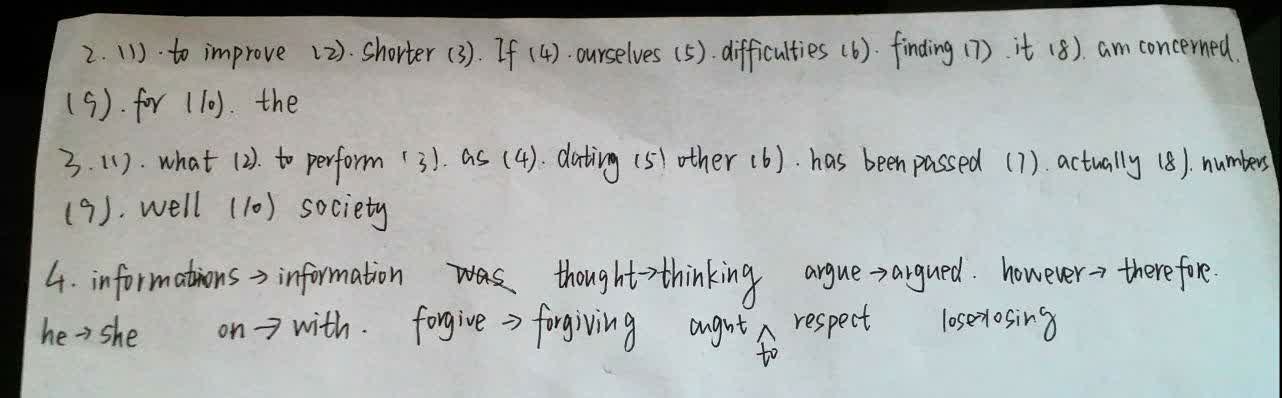 2. (1). to improve (2). shorter (3). If (4). ourselves (5). difficulties (6). finding (7). it (8). am concerned.
(9). for (10). the
3. (1). what (2). to perform (3). as (4). dating (5) other (6). has been passed (7). actually (8). numbers
(9). well (10) society
4. informations → information was thought→thinking argue→argued. however→ therefore.
he→she on→with. forgive → forgiving ought ^ respect lose→losing
to